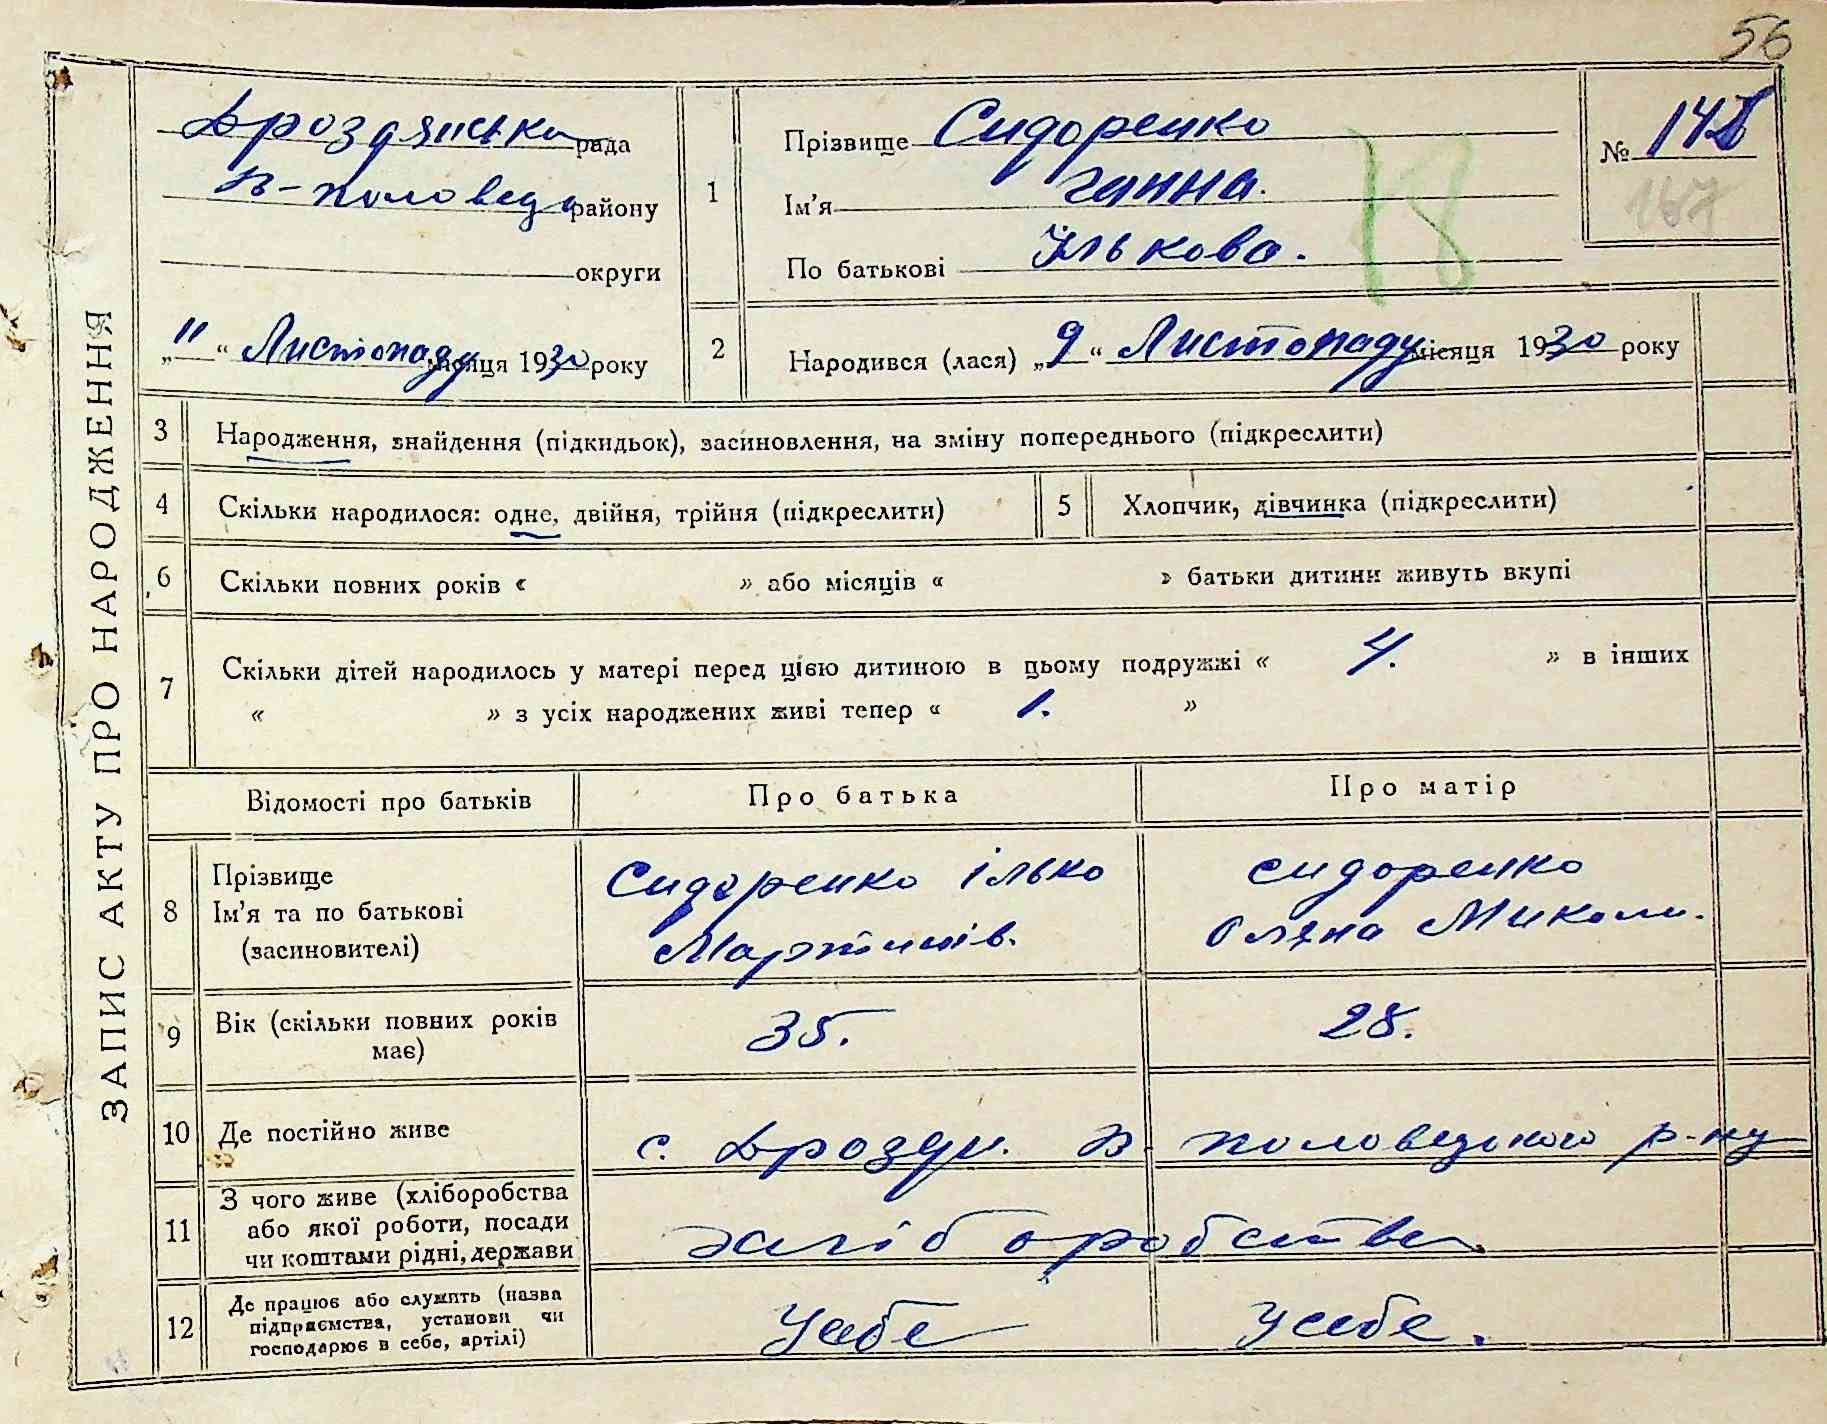 56
ЗАПИС АКТУ ПРО НАРОДЖЕННЯ
Дроздянська рада
В-Половец. району
округи
„11“ Листопаду місяця 1930 року
1
Прізвище Сидоренко
Ім'я Ганна.
По батькові Ількова.
18
№ 148
167
2
Народився (лася) „9“ Листопаду місяця 1930 року
3 Народження, знайдення (підкидьок), засиновлення, на зміну попереднього (підкреслити)
4 Скільки народилося: одне, двійня, трійня (підкреслити)
5 Хлопчик, дівчинка (підкреслити)
6 Скільки повних років « » або місяців « » батьки дитини живуть вкупі
7 Скільки дітей народилось у матері перед цією дитиною в цьому подружжі « 4. » в інших
« » з усіх народжених живі тепер « 1. »
Відомості про батьків Про батька Про матір
8 Прізвище
Ім'я та по батькові
(засиновителі)
Сидоренко Ілько
Мартинів.
Сидоренко
Оляна Миколи.
9 Вік (скільки повних років
має)
35. 28.
10 Де постійно живе с. Дрозди. В Половецького р-ну
11 З чого живе (хліборобства
або якої роботи, посади
чи коштами рідні, держави
хліборобства
12 Де працює або служить (назва
підприємства, установи чи
господарює в себе, артілі)
У себе У себе.